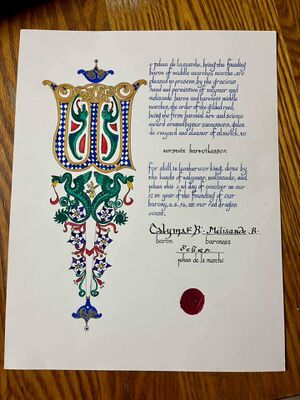 W
e johan de la marche, being the founding
baron of middle marches marche, are
pleased to present, by the gracious
hand and permission of talymar and
melisande baron and baroness middle
marches, the order of the gilded reed,
being the first baronial arts and science
award created by our successors, qalan
de ruyard and eleanor of alnwick, to
torstein harvorkesson
for skill in leatherworking, done by
the hands of talymar, melisande, and
johan this 2nd day of october, as our
12th year of the founding of our
barony, a.s. 50, as our red dragon
event.
Talymar B. Melisande B.
baron baroness
johan de la marche